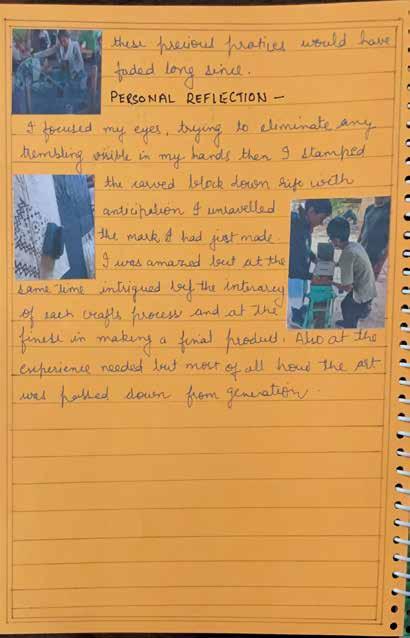 these precious pratices would have
faded long since.
PERSONAL REFLECTION -
I focused my eyes, trying to eliminate any
trembling visible in my hands then I stamped
the carved block down rife with
anticipation I unravelled
the mark I had just made.
I was amazed but at the
same time intrigued by the intricacy
of each crafts process and at the
finese in making a final product. Also at the
experience needed but most of all how the art
was passed down from generation.